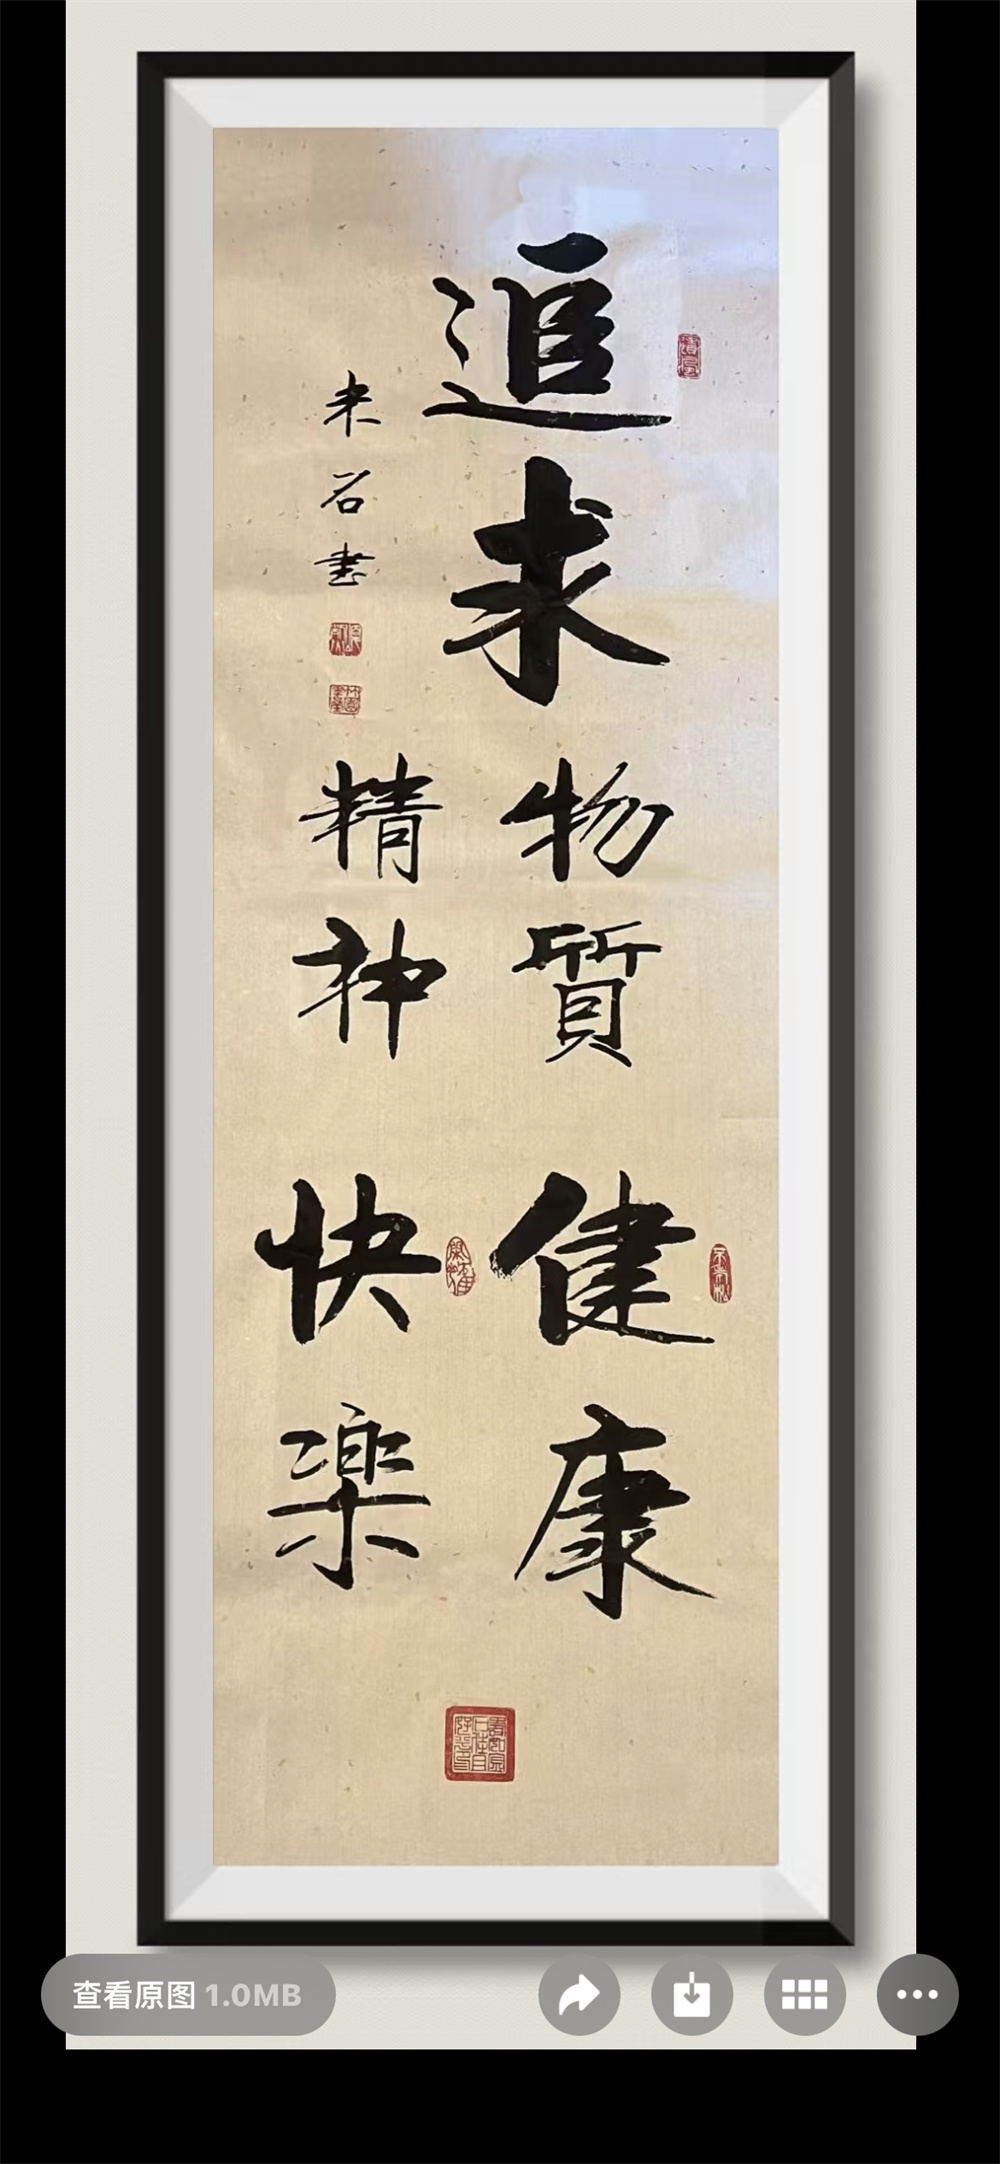 追求
物質 健康
精神 快楽
来石書
查看原图 1.0MB